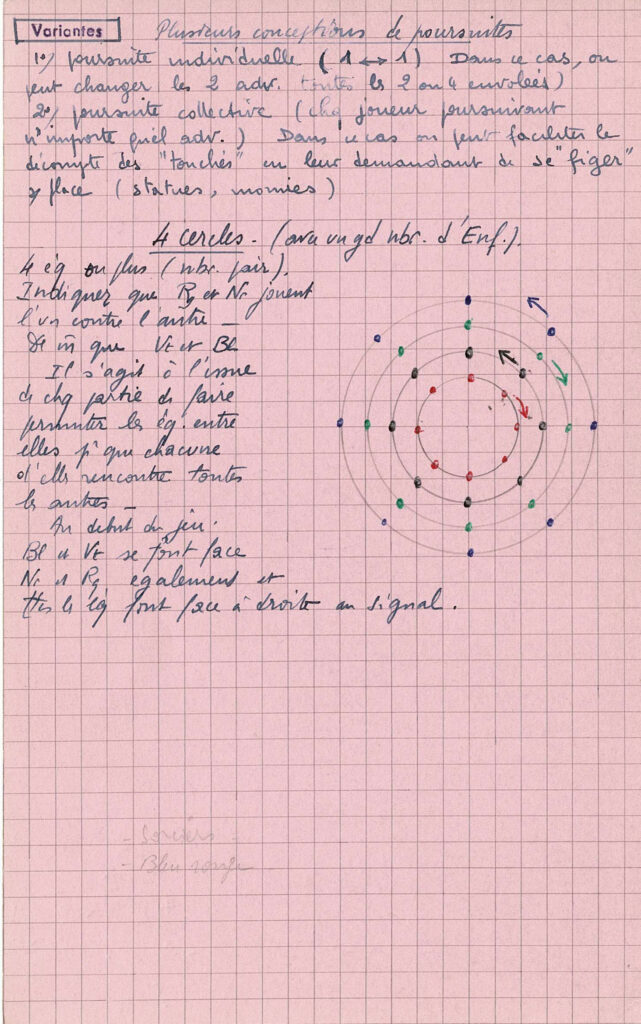 Variantes
Plusieurs conceptions de poursuites
1°/ poursuite individuelle (1 ↔ 1) Dans ce cas, on
peut changer les 2 adv. toutes les 2 ou 4 envolées)
2°/ poursuite collective (chq joueur poursuivant
n'importe quel adv.) Dans ce cas on peut faciliter le
décompte des "touchés" en leur demandant de se "figer"
s/ place (statues, momies)
4 cercles. (avec un gd nbr. d'Enf.).
4 éq ou plus (nbr. pair).
Indiquer que Rg et Nr jouent
l'un contre l'autre _
De m̄ que Vt et Bl
Il s'agit à l'issue
de chq partie de faire
permuter les éq. entre
elles pr que chacune
d'elles rencontre toutes
les autres _
Au début du jeu.
Bl et Vt se font face
Nr et Rg également et
ttes les éq font face à droite au signal.
- Sorciers -
- Bleu rouge